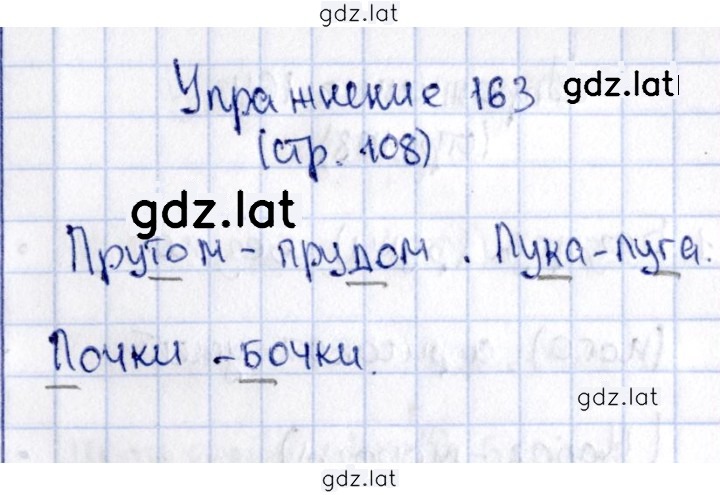 gdz.lat
Упражнение 163
gdz.lat
(стр. 108)
gdz.lat
Прутом - прудом. Лука - луга.
Почки - бочки.
gdz.lat
gdz.lat